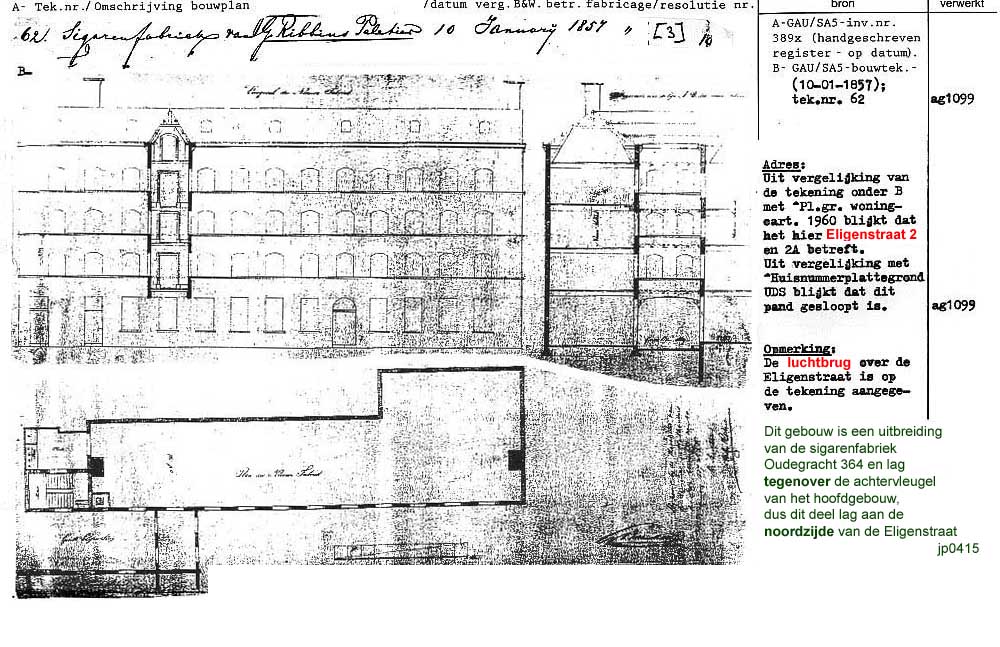 A- Tek.nr./Omschrijving bouwplan /datum verg.B&W.betr.fabricage/resolutie nr. bron verwerkt
62. Sigarenfabriek van G Ribbius Peletier 10 January 1857 " [3]
B-
A-GAU/SA5-inv.nr.
389x (handgeschreven
register - op datum).
B- GAU/SA5-bouwtek.-
(10-01-1857);
tek.nr. 62 ag1099
Adres:
Uit vergelijking van
de tekening onder B
met "Pl.gr. woning-
cart. 1960 blijkt dat
het hier Eligenstraat 2
en 2A betreft.
Uit vergelijking met
"Huisnummerplattegrond
UDS blijkt dat dit
pand gesloopt is. ag1099
Opmerking:
De luchtbrug over de
Eligenstraat is op
de tekening aangege-
ven.
Dit gebouw is een uitbreiding
van de sigarenfabriek
Oudegracht 364 en lag
tegenover de achtervleugel
van het hoofdgebouw,
dus dit deel lag aan de
noordzijde van de Eligenstraat
jp0415